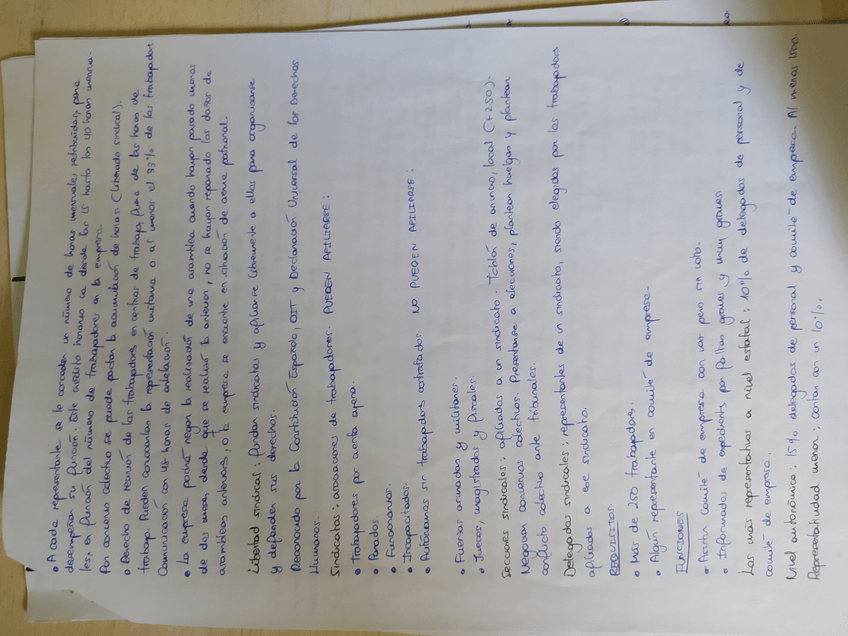 • A cada representante se le conceden un número de horas mensuales retribuidas, para
desempeñar su función. Este crédito horario va desde las 15 hasta las 40 horas mensua-
les, en función del número de trabajadores en la empresa.
Por convenio colectivo se puede pactar la acumulación de horas (liberado sindical).
• Derecho de reunión de los trabajadores, en centros de trabajo, fuera de las horas de
trabajo. Pueden convocarlas la representación unitaria o al menos el 33% de los trabajadores.
Comunicación con 48 horas de antelación.
• La empresa podrá negar la realización de una asamblea cuando hayan pasado menos
de dos meses desde que se realizó la anterior, no se hayan reparado los daños de
asambleas anteriores, o la empresa se encuentre en situación de cierre patronal.
Libertad sindical: fundar sindicatos y afiliarse libremente a ellos para organizarse
y defender sus derechos.
Reconocido por la Constitución Española, OIT y Declaración Universal de los Derechos
Humanos.
Sindicatos: asociaciones de trabajadores. PUEDEN AFILIARSE:
• Trabajadores por cuenta ajena.
• Parados
• Funcionarios.
• Incapacitados.
• Autónomos sin trabajadores contratados. NO PUEDEN AFILIARSE:
• Fuerzas armadas y militares.
• Jueces, magistrados y fiscales.
Secciones sindicales: afiliados a un sindicato. Tablón de anuncio, local (+250).
Negocian convenios colectivos. Presentarse a elecciones, plantean huelgas y plantean
conflicto colectivo ante tribunales.
Delegados sindicales: representantes de un sindicato, siendo elegidos por los trabajadores
afiliados a ese sindicato.
REQUISITOS
• Más de 250 trabajadores.
• Algún representante en comité de empresa.
FUNCIONES
• Asistir Comité de empresa con voz pero sin voto.
• Informados de expediente por faltas graves y muy graves
Los más representativos a nivel estatal: 10% de delegados de personal y de
comité de empresa.
Nivel autonómico: 15% delegados de personal y comité de empresa. Al menos 1500.
Representatividad menor: cuentan con un 10%.